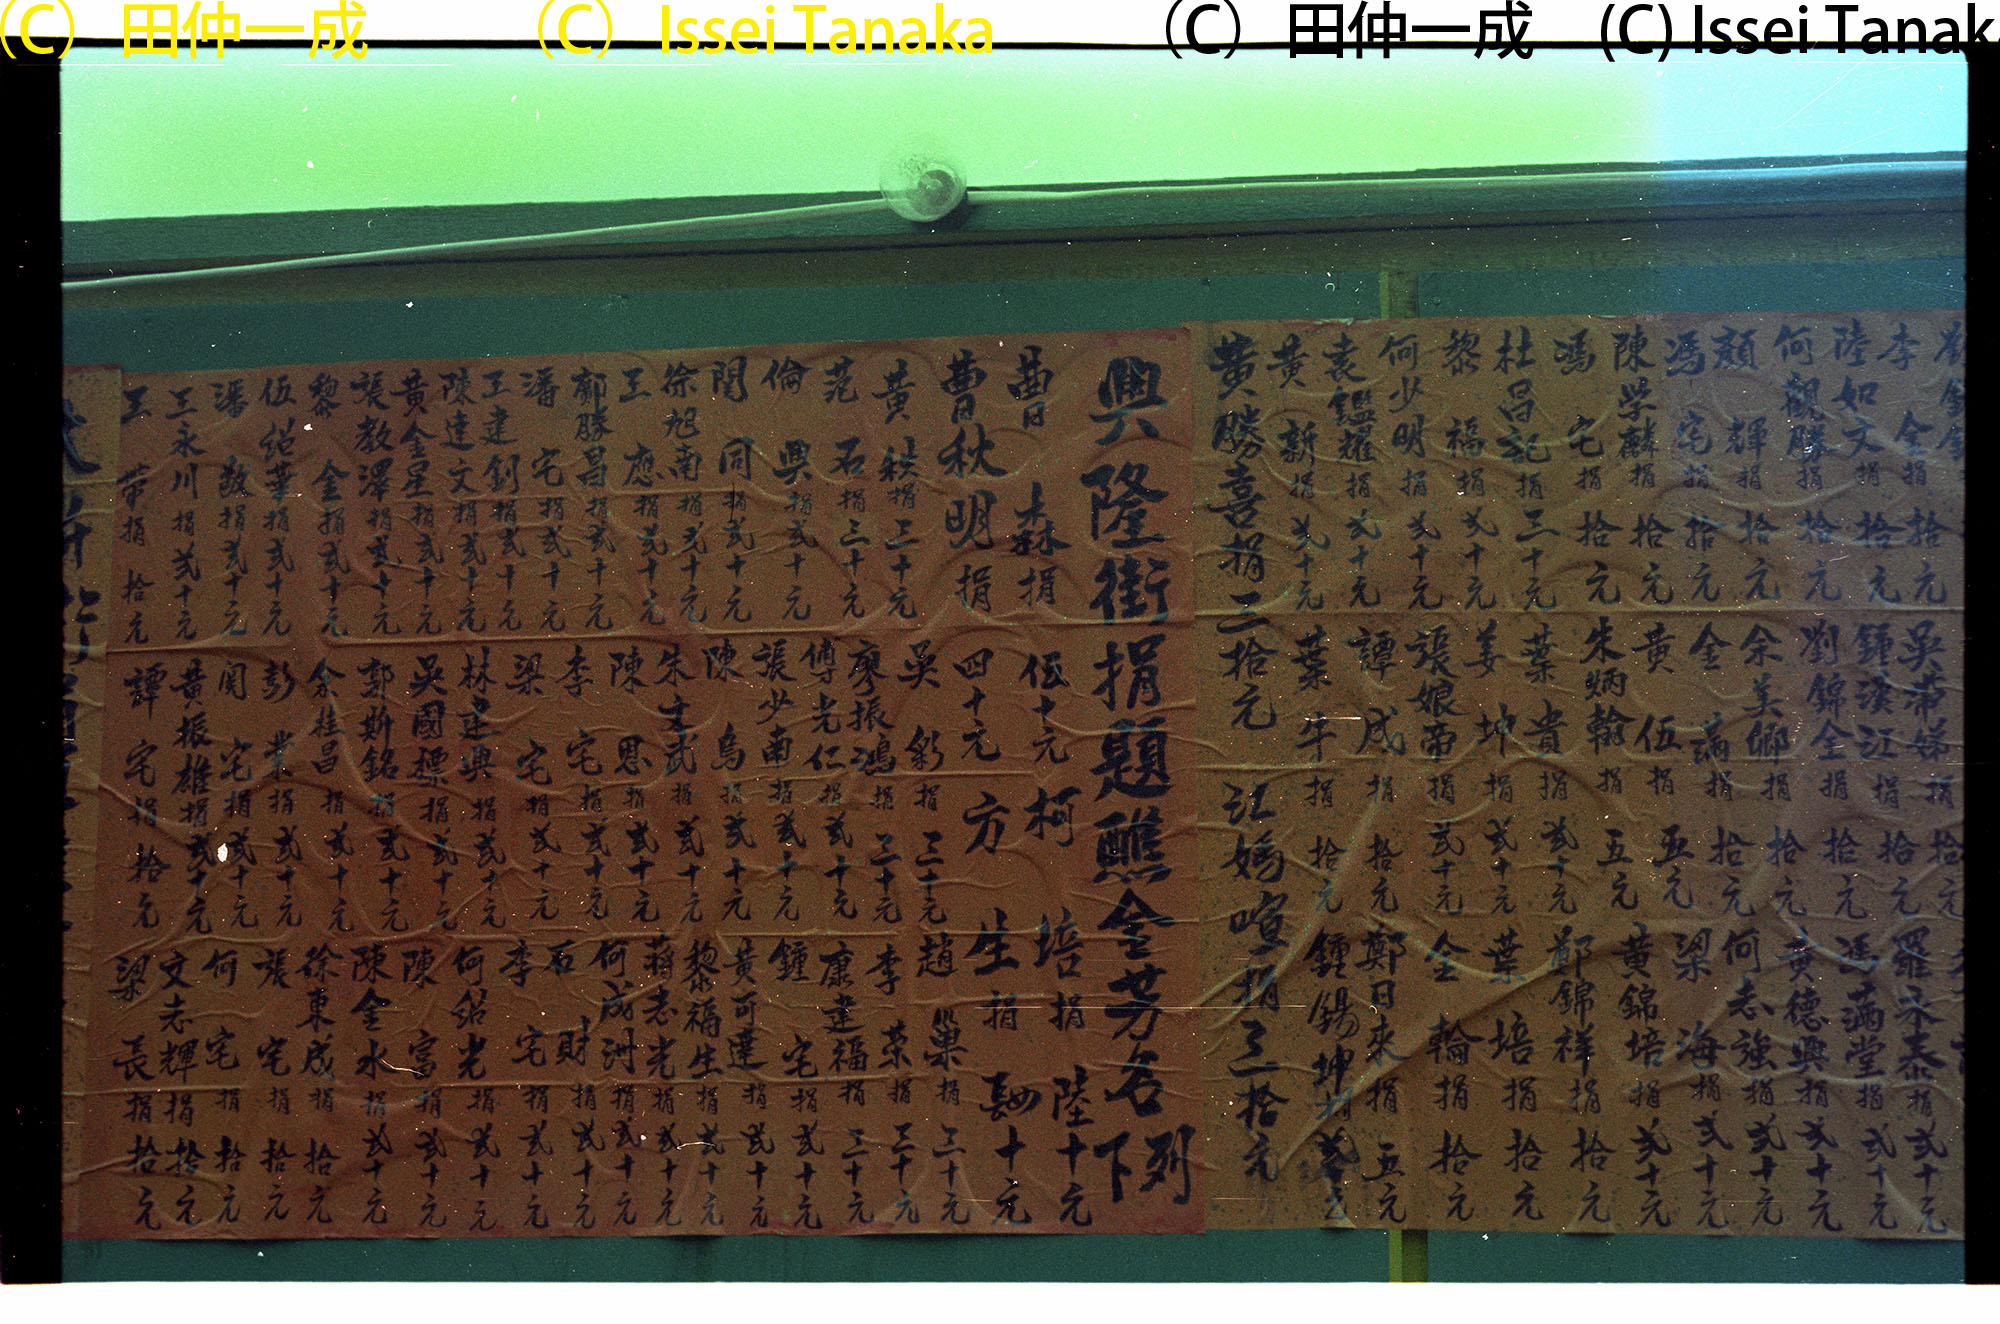 (C) 田仲一成
(C) Issei Tanaka
(C) 田仲一成
(C) Issei Tanak
李金捐拾元
陸如文捐拾元
何觀勝捐拾元
顏輝捐拾元
馮宅捐拾元
陳学麟捐拾元
馮宅捐拾元
杜昌記捐三十元
黎福捐弍十元
何少明捐弍十元
袁鑑耀捐弍十元
黃新捐弍十元
吳帝娣捐拾元
鍾漢江捐拾元
劉錦全捐拾元
余美卿捐拾元
金滿捐拾元
黃伍捐五元
朱炳翰捐五元
葉貴捐弍十元
姜坤捐弍十元
張娘帝捐弍十元
譚成捐拾元
葉牛捐拾元
羅永泰捐弍十元
馮滿堂捐弍十元
黃德興捐弍十元
何志強捐弍十元
梁海捐弍十元
黃錦培捐弍十元
鄭錦祥捐拾元
葉培捐拾元
金輪捐拾元
鄭日來捐五元
鍾錫坤捐
黃勝喜捐三拾元 江嬌喧捐三拾元
興隆街捐題醮金芳名下列
曹森捐伍十元 柯培捐陸十元
曹秋明捐四十元 方生捐十元
黃秩捐三十元
范石捐三十元
倫興捐弍十元
閆同捐弍十元
徐旭南捐弍十元
王應捐弍十元
鄺勝昌捐弍十元
潘宅捐弍十元
王建釗捐弍十元
陳達文捐弍十元
黃金星捐弍十元
張教澤捐弍十元
黎金捐弍十元
伍紹華捐弍十元
潘敬捐弍十元
王永川捐弍十元
王帶捐拾元
吳彩捐三十元
廖振鴻捐三十元
傅光仁捐弍十元
張少南捐弍十元
陳烏捐弍十元
朱生武捐弍十元
陳恩捐弍十元
李宅捐弍十元
梁宅捐弍十元
林建興捐弍十元
吳國標捐弍十元
郭斯銘捐弍十元
余桂昌捐弍十元
彭業捐弍十元
関宅捐弍十元
黃振雄捐弍十元
譚宅捐拾元
趙巢捐三十元
李荣捐三十元
康建福捐三十元
鍾宅捐弍十元
黃可達捐弍十元
黎福生捐弍十元
蔣志光捐弍十元
何成洲捐弍十元
石財捐弍十元
李宅捐弍十元
何紹光捐弍十元
陳富捐弍十元
陳金水捐弍十元
徐東成捐拾元
張宅捐拾元
何宅捐拾元
文志輝捐拾元
梁長捐拾元